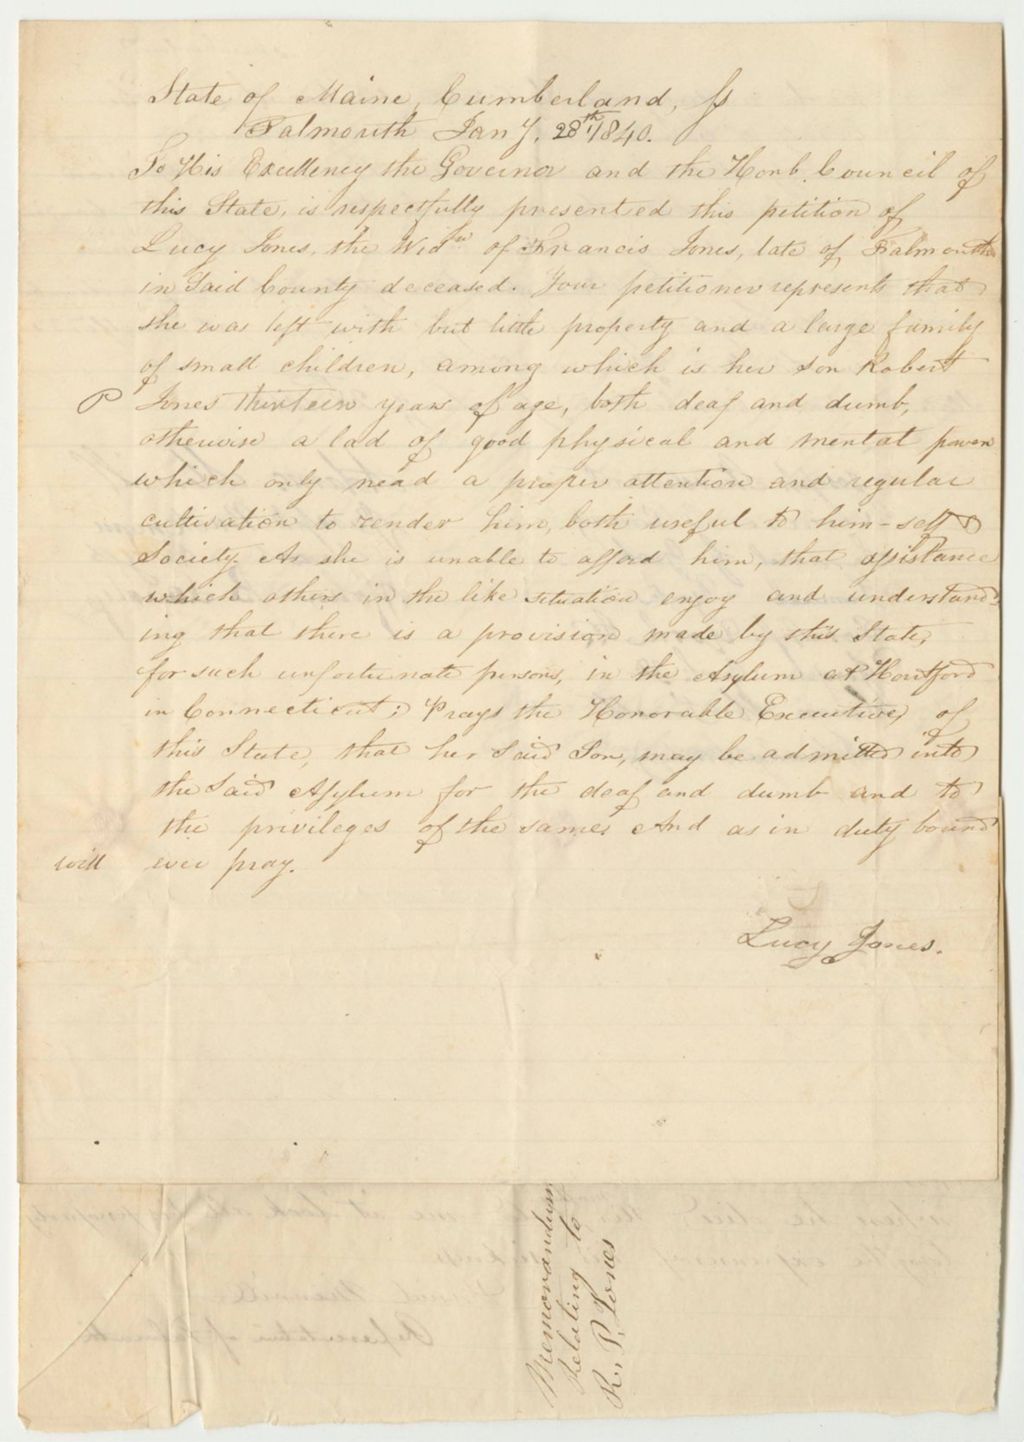 State of Maine, Cumberland, ss
Falmouth Jany. 28th 1840.
To His Excellency the Governor and the Honb. Council of
this State, is respectfully presented this petition of
Lucy Jones, the Widw of Francis Jones, late of Falmouth
in Said County deceased. Your petitioner represents that
she was left with but little property and a large family
of small children, among which is her son Robert
P Jones thirteen years of age, both deaf and dumb,
otherwise a lad of good physical and mental powers
which only nead a proper attention and regular
cultivation to render him, both useful to him-self &
Society. As she is unable to afford him, that assistance
which others in the like situation enjoy and understand-
ing that there is a provision made by this State,
for such unfortunate persons, in the Asylum at Hartford
in Connecticut; Prays the Honorable Executive, of
this State, that her Said Son, may be admitted into
the Said Asylum for the deaf and dumb and to
the privileges of the same, And as in duty bound
will ever pray.
Lucy Jones.
Memorandum
Relating to
R. P. Jones